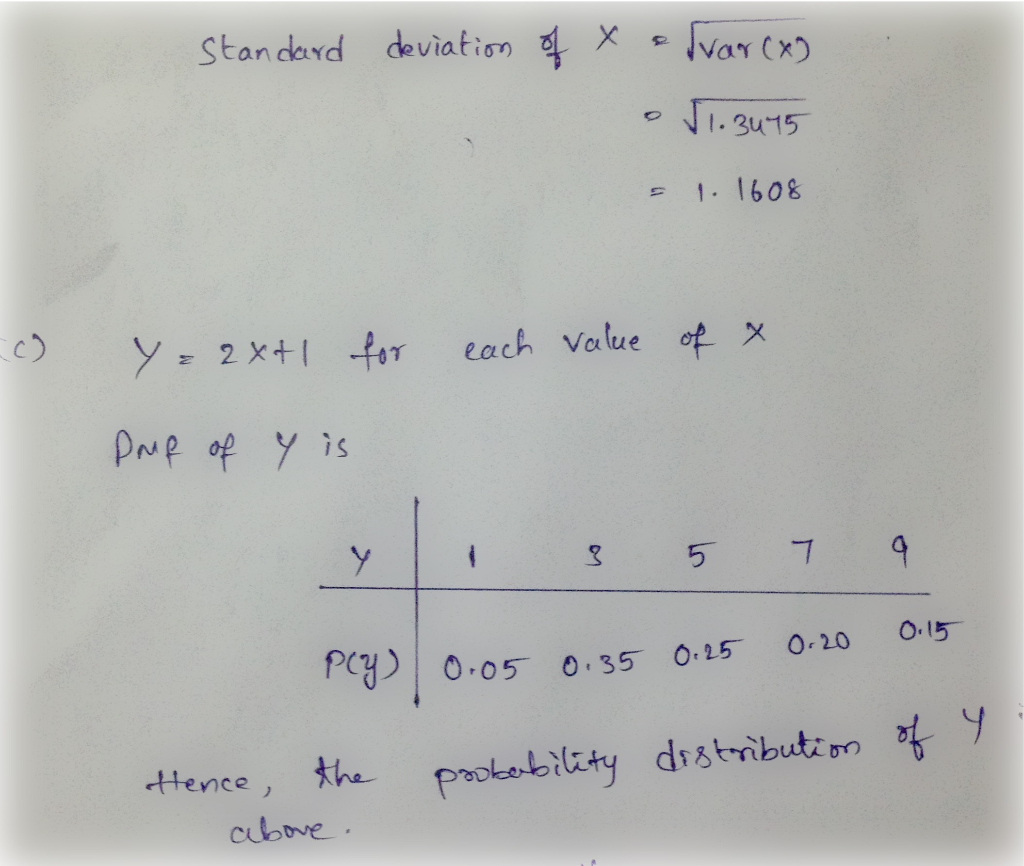 Standard deviation of X = √var(x)
= √1.3475
= 1.1608
(c) Y = 2x+1 for each value of x
PMf of Y is
Y 1 3 5 7 9
P(y) 0.05 0.35 0.25 0.20 0.15
Hence, the probability distribution of Y
above.